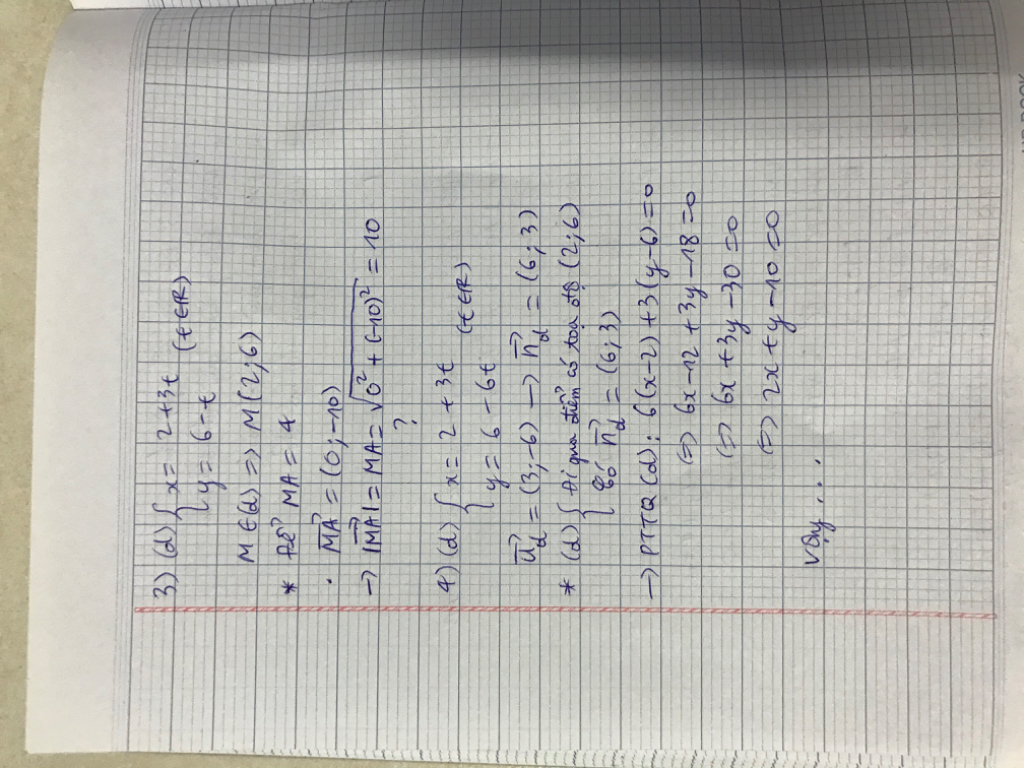 3) (d) { x = 2+3t (t∈R)
y = 6-t
M∈(d) => M(2;6)
* Để MA = 4
. MA→ = (0;-10)
→ |MA→| = MA = √(0² + (-10)²) = 10
?
4) (d) { x = 2+3t (t∈R)
y = 6-6t
u→d = (3;-6) → n→d = (6;3)
* (d) { đi qua điểm có tọa độ (2;6)
có n→d = (6;3)
→ PTTQ (d): 6(x-2)+3(y-6)=0
(=) 6x-12+3y-18=0
(=) 6x+3y-30=0
(=) 2x+y-10=0
Vậy....